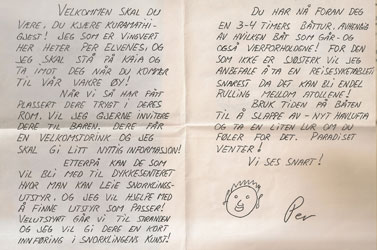 VELKOMMEN SKAL DU
VÆRE, DU KJÆRE KURAMATHI-
GJEST! JEG SOM ER VINGVERT
HER HETER PER ELVENES, OG
JEG SKAL STÅ PÅ KAIA OG
TA IMOT DEG NÅR DU KOMMER
TIL VÅR VAKRE ØY!
NÅR VI SÅ HAR FÅTT
PLASSERT DERE TRYGT I DERES
ROM, VIL JEG GJERNE INVITERE
DERE TIL BAREN. DERE FÅR
EN VELKOMSTDRINK OG JEG
SKAL GI LITT NYTTIG INFORMASJON!
ETTERPÅ KAN DE SOM
VIL BLI MED TIL DYKKESENTERET
HVOR MAN KAN LEIE SNORKLINGS-
UTSTYR, OG JEG VIL HJELPE MED
Å FINNE UTSTYR SOM PASSER!
VELUTSTYRT GÅR VI TIL STRANDEN
OG JEG VIL GI DERE EN KORT
INNFØRING I SNORKLINGENS KUNST!
DU HAR NÅ FORAN DEG
EN 3-4 TIMERS BÅTTUR, AVHENGIG
AV HVILKEN BÅT SOM GÅR - OG
OGSÅ VÆRFORHOLDENE! FOR DEN
SOM IKKE ER SJØSTERK VIL JEG
ANBEFALE Å TA EN REISESYKETABLETT
SNAREST DA DET KAN BLI ENDEL
RULLING MELLOM ATOLLENE!
BRUK TIDEN PÅ BÅTEN
TIL Å SLAPPE AV - NYT HAVLUFTA
OG TA EN LITEN LUR OM DU
FØLER FOR DET. PARADISET
VENTER!
VI SES SNART!
Per